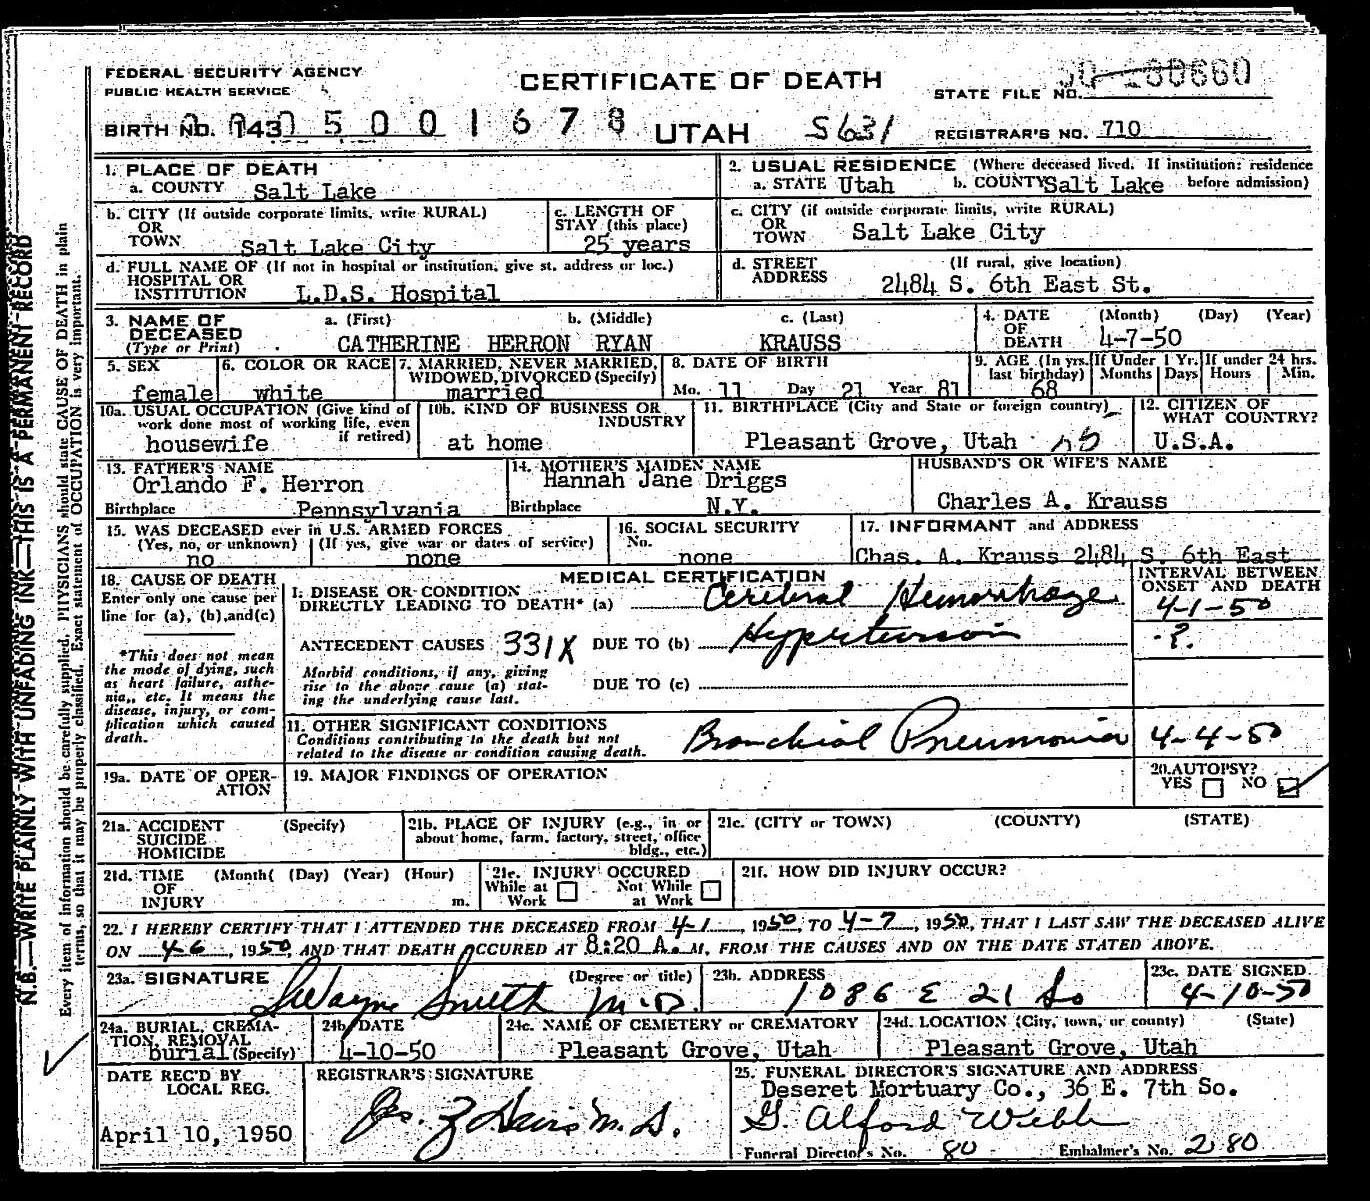 FEDERAL SECURITY AGENCY
PUBLIC HEALTH SERVICE
CERTIFICATE OF DEATH
STATE FILE NO.
BIRTH NO. 143 5 0 0 1 6 7 8
UTAH S631
REGISTRAR'S NO. 710
1. PLACE OF DEATH
a. COUNTY Salt Lake
2. USUAL RESIDENCE (Where deceased lived. If institution: residence before admission)
a. STATE Utah b. COUNTY Salt Lake
b. CITY (If outside corporate limits, write RURAL)
OR
TOWN Salt Lake City
c. LENGTH OF
STAY (this place)
25 years
c. CITY (if outside corporate limits, write RURAL)
OR
TOWN Salt Lake City
d. FULL NAME OF (If not in hospital or institution, give st. address or loc.)
HOSPITAL OR
INSTITUTION L.D.S. Hospital
d. STREET (If rural, give location)
ADDRESS 2484 S. 6th East St.
3. NAME OF
DECEASED
(Type or Print)
a. (First) b. (Middle) c. (Last)
CATHERINE HERRON RYAN KRAUSS
4. DATE (Month) (Day) (Year)
OF
DEATH 4-7-50
5. SEX
female
6. COLOR OR RACE
white
7. MARRIED, NEVER MARRIED,
WIDOWED, DIVORCED (Specify)
married
8. DATE OF BIRTH
Mo. 11 Day 21 Year 81
9. AGE (In yrs. last birthday)
68
If Under 1 Yr.
Months Days
If under 24 hrs.
Hours Min.
10a. USUAL OCCUPATION (Give kind of
work done most of working life, even
if retired)
housewife
10b. KIND OF BUSINESS OR
INDUSTRY
at home
11. BIRTHPLACE (City and State or foreign country)
Pleasant Grove, Utah
12. CITIZEN OF
WHAT COUNTRY?
U.S.A.
13. FATHER'S NAME
Orlando F. Herron
Birthplace Pennsylvania
14. MOTHER'S MAIDEN NAME
Hannah Jane Driggs
Birthplace N.Y.
HUSBAND'S OR WIFE'S NAME
Charles A. Krauss
15. WAS DECEASED ever in U.S. ARMED FORCES
(Yes, no, or unknown) (If yes, give war or dates of service)
no none
16. SOCIAL SECURITY
No.
none
17. INFORMANT and ADDRESS
Chas. A. Krauss 2484 S 6th East
18. CAUSE OF DEATH
Enter only one cause per
line for (a), (b),and(c)
*This does not mean
the mode of dying, such
as heart failure, asthe-
nia, etc. It means the
disease, injury, or com-
plication which caused
death.
MEDICAL CERTIFICATION
INTERVAL BETWEEN
ONSET AND DEATH
I. DISEASE OR CONDITION
DIRECTLY LEADING TO DEATH* (a) Cerebral Hemorrhage 4-1-50
ANTECEDENT CAUSES 331X DUE TO (b) Hypertension ?
Morbid conditions, if any, giving
rise to the above cause (a) stat-
ing the underlying cause last.
DUE TO (c)
11. OTHER SIGNIFICANT CONDITIONS
Conditions contributing to the death but not
related to the disease or condition causing death.
Bronchial Pneumonia 4-4-50
19a. DATE OF OPER-
ATION
19. MAJOR FINDINGS OF OPERATION
20. AUTOPSY?
YES NO
21a. ACCIDENT (Specify)
SUICIDE
HOMICIDE
21b. PLACE OF INJURY (e.g., in or
about home, farm, factory, street, office
bldg., etc.)
21c. (CITY or TOWN) (COUNTY) (STATE)
21d. TIME (Month( (Day) (Year) (Hour)
OF
INJURY m.
21e. INJURY OCCURED
While at Work Not While at Work
21f. HOW DID INJURY OCCUR?
22. I HEREBY CERTIFY THAT I ATTENDED THE DECEASED FROM 4-1, 1950, TO 4-7, 1950, THAT I LAST SAW THE DECEASED ALIVE
ON 4-6, 1950, AND THAT DEATH OCCURED AT 8:20 A. M, FROM THE CAUSES AND ON THE DATE STATED ABOVE.
23a. SIGNATURE (Degree or title)
SWayne Smith M.D.
23b. ADDRESS
1086 E 21 So
23c. DATE SIGNED
4-10-50
24a. BURIAL, CREMA-
TION, REMOVAL
burial (Specify)
24b. DATE
4-10-50
24c. NAME OF CEMETERY or CREMATORY
Pleasant Grove, Utah
24d. LOCATION (City, town, or county) (State)
Pleasant Grove, Utah
DATE REC'D BY
LOCAL REG.
April 10, 1950
REGISTRAR'S SIGNATURE
25. FUNERAL DIRECTOR'S SIGNATURE AND ADDRESS
Deseret Mortuary Co., 36 E. 7th So.
G. Alford Webb
Funeral Director's No. 80 Embalmer's No. 280
N.B.—WRITE PLAINLY WITH UNFADING INK—THIS IS A PERMANENT RECORD
Every item of information should be carefully supplied. PHYSICIANS should state CAUSE OF DEATH in plain
terms, so that it may be properly classified. Exact statement of OCCUPATION is very important.